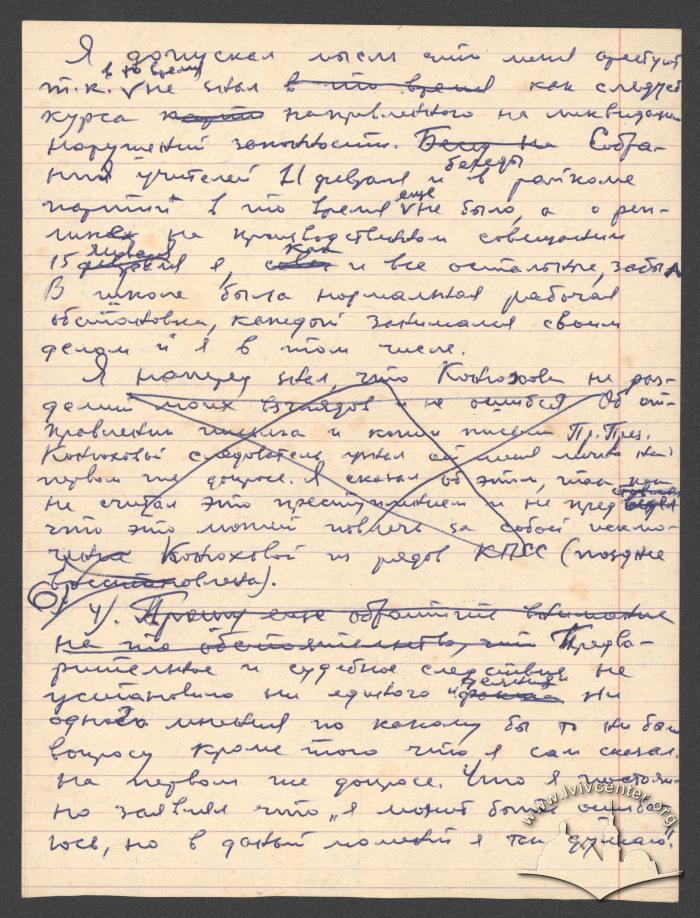 Я допускал мысль что меня арестуют
в то время
т.к. V не знал в то время как следует
курса парти направленного на ликвидацию
нарушений законности. Бесед на Собра-
беседы
ний учителей 11 февраля и в райкоме
еще
партии в то время V не было, а о реп-
ликах на производственном совещании
января как
15 февраля я, и все остальные, забыл
В школе была нормальная рабочая
обстановка, каждый занимался своим
делом и я в том числе.
Я наперед знал, что Конюхова не раз-
делит моих взглядов и не ошибся Об от-
правлении письма и копии письма Пр. През.
Конюховой следователь узнал от меня лично на
первом же допросе. Я сказал об этом, так как
не считал это преступлением и не пред
что это может повлечь за собой исклю-
чение Конюховой из рядов КПСС (позднее
восстановлена).
6) 4). Прошу еще обратить внимание
на то обстоятельство, что Предва-
рительное и судебное следствие не
установило ни единого "факта" ни
одного мнения по какому бы то ни было
вопросу кроме того что я сам сказал
на первом же допросе. Что я постоян-
но заявлял что "я может быть ошиба-
юсь, но в данный момент я так думаю".
www.lvivcenter.org